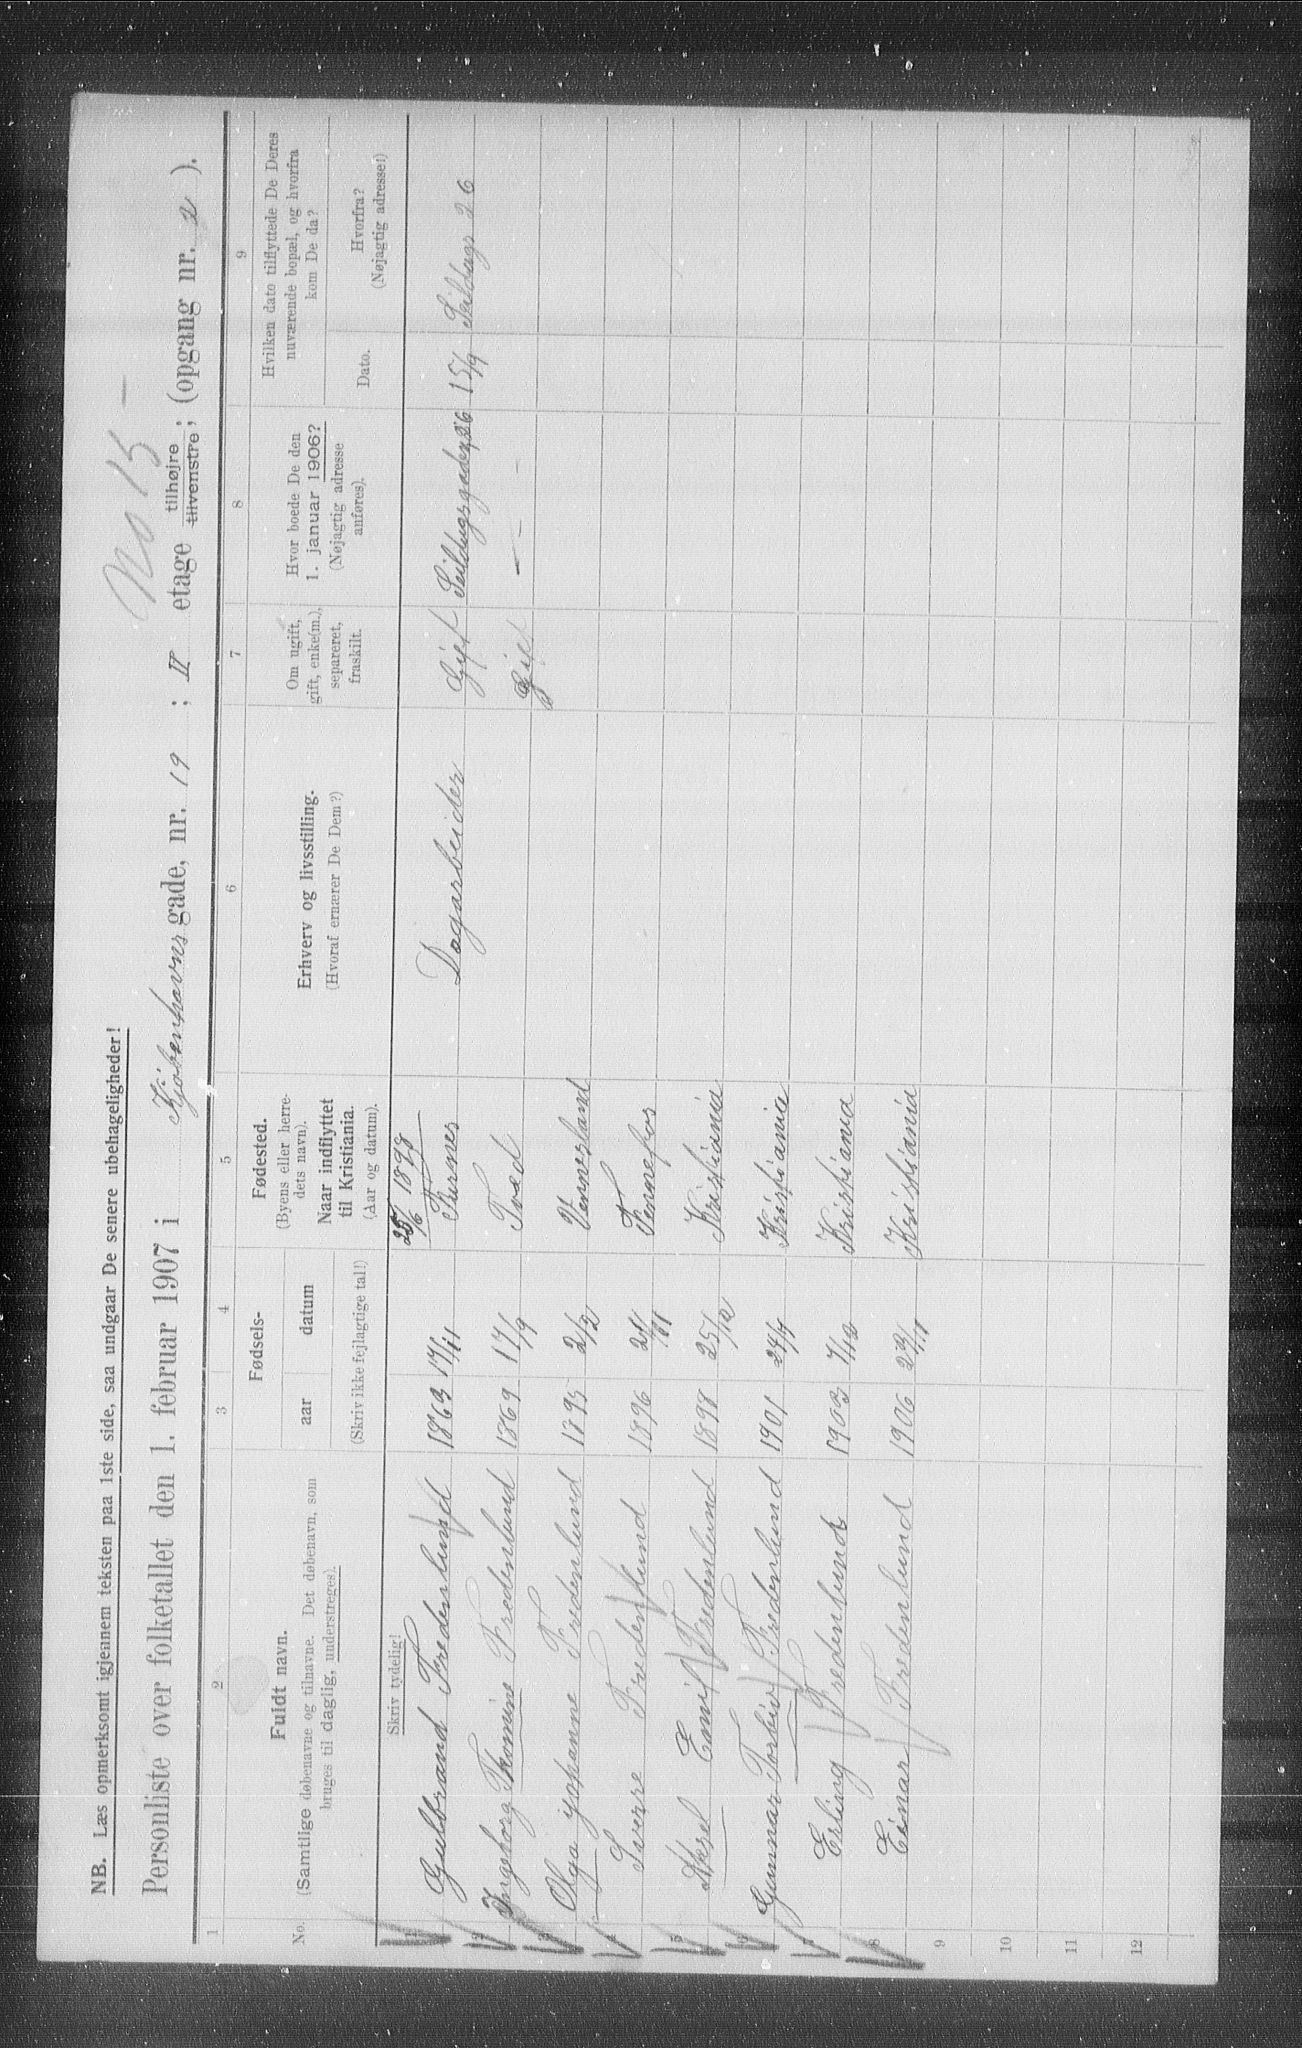 No 15 —
NB. Læs opmerksomt igjennem teksten paa 1ste side, saa undgaar De senere ubehageligheder!
Personliste over folketallet den 1. februar 1907 i Kjøbenhavns gade, nr. 19 ; II etage tilhøjre tilvenstre ; (opgang nr. 2 ).
1 2 3 4 5 6 7 8 9
No. Fuldt navn. (Samtlige døbenavne og tilnavne. Det døbenavn, som bruges til daglig, understreges).
Fødsels- aar datum (Skriv ikke fejlagtige tal!)
Fødested. (Byens eller herredets navn). Naar indflyttet til Kristiania. (Aar og datum).
Erhverv og livsstilling. (Hvoraf ernærer De Dem?)
Om ugift, gift, enke(m.), separeret, fraskilt.
Hvor boede De den 1. januar 1906? (Nøjagtig adresse anføres).
Hvilken dato tilflyttede De Deres nuværende bopæl, og hvorfra kom De da?
Dato. Hvorfra? (Nøjagtig adresse!)
Skriv tydelig!
25/6 1898
1 Gulbrand Fredenlund 1863 17/11 Furnes Dagarbeider Gift Seildugsgaden 26 15/9 Seildugs 26
2 Ingeborg Thomine Fredenlund 1869 17/9 Tved Gift — " —
3 Olga Johanne Fredenlund 1895 2/2 Vennesland
4 Sverre Fredenlund 1896 Vennefos
5 Aksel Emil Fredenlund 1898 25/12 Kristiania
6 Gunnar Torbiv Fredenlund 1901 24/4 Kristiania
7 Erling Fredenlund 1903 7/12 Kristiania
8 Einar Fredenlund 1906 29/11 Kristiania
9
10
11
12